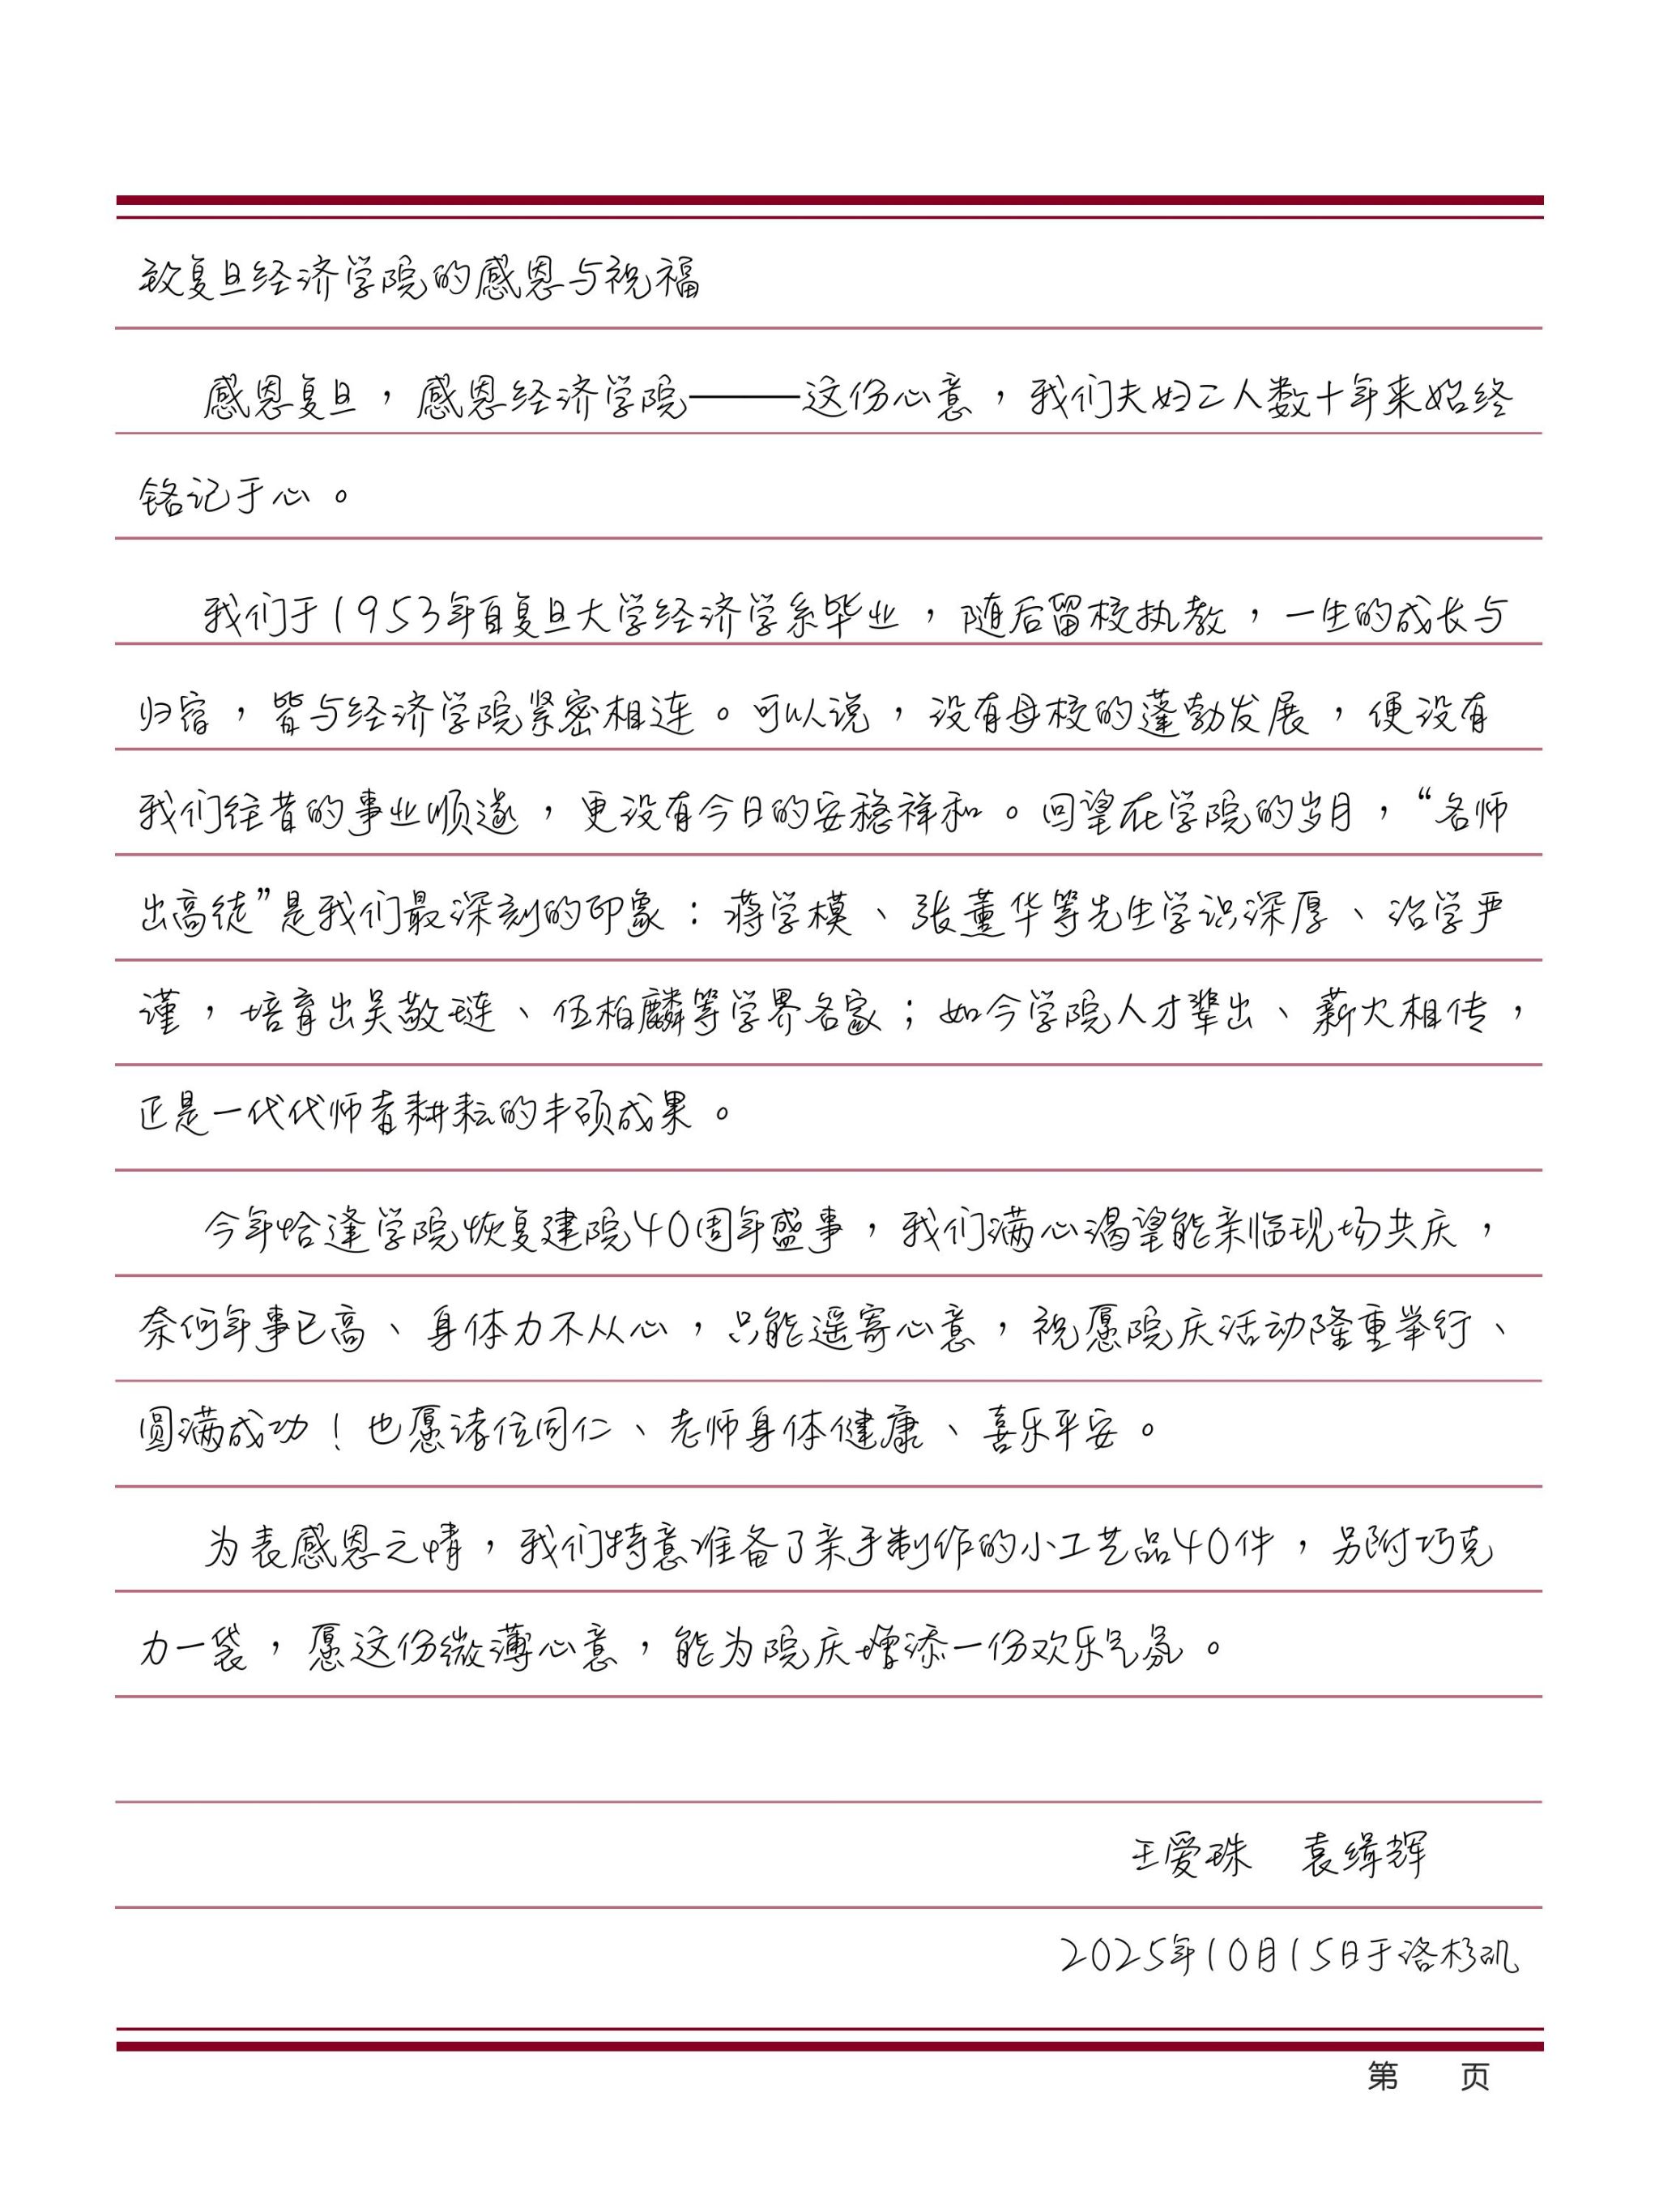 致复旦经济学院的感恩与祝福
感恩复旦，感恩经济学院——这份心意，我们夫妇二人数十年来始终
铭记于心。
我们于1953年自复旦大学经济学系毕业，随后留校执教，一生的成长与
归宿，皆与经济学院紧密相连。可以说，没有母校的蓬勃发展，便没有
我们往昔的事业顺遂，更没有今日的安稳祥和。回望在学院的岁月，“名师
出高徒”是我们最深刻的印象：蒋学模、张薰华等先生学识深厚、治学严
谨，培育出吴敬琏、伍柏麟等学界名家；如今学院人才辈出、薪火相传，
正是一代代师者耕耘的丰硕成果。
今年恰逢学院恢复建院40周年盛事，我们满心渴望能亲临现场共庆，
奈何年事已高、身体力不从心，只能遥寄心意，祝愿院庆活动隆重举行、
圆满成功！也愿诸位同仁、老师身体健康、喜乐平安。
为表感恩之情，我们特意准备了亲手制作的小工艺品40件，另附巧克
力一袋，愿这份微薄心意，能为院庆增添一份欢乐气氛。
王爱珠 袁缉辉
2025年10月15日于洛杉矶
第 页